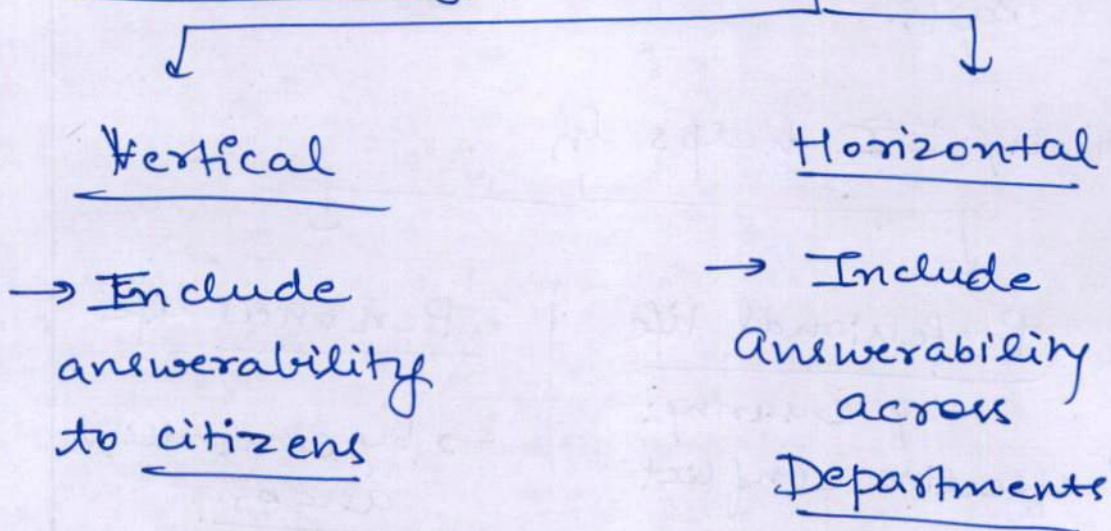 Vertical
→ Include
answerability
to citizens
Horizontal
→ Include
Answerability
across
Departments